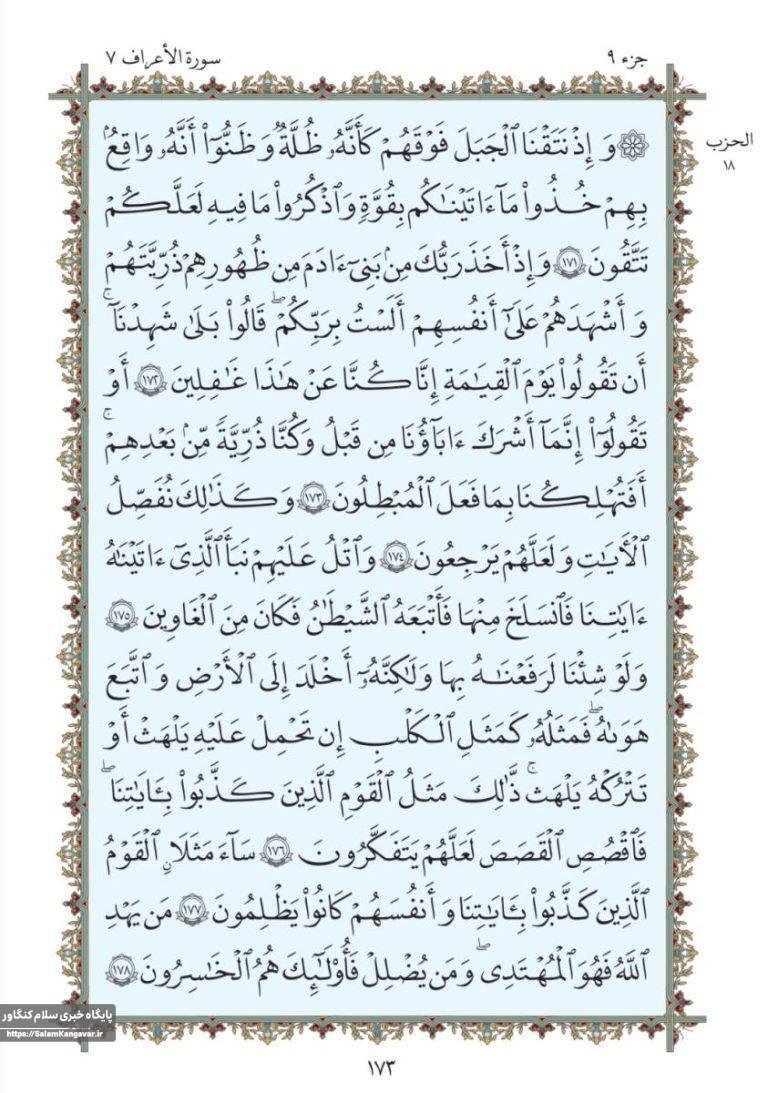 سورة الأعراف ٧
جزء ٩
الحزب
١٨
۞ وَإِذْ نَتَقْنَا ٱلْجَبَلَ فَوْقَهُمْ كَأَنَّهُۥ ظُلَّةٌ وَظَنُّوٓا۟ أَنَّهُۥ وَاقِعٌۢ
بِهِمْ خُذُوا۟ مَآ ءَاتَيْنَٰكُم بِقُوَّةٍ وَٱذْكُرُوا۟ مَا فِيهِ لَعَلَّكُمْ
تَتَّقُونَ ١٧١ وَإِذْ أَخَذَ رَبُّكَ مِنۢ بَنِىٓ ءَادَمَ مِن ظُهُورِهِمْ ذُرِّيَّتَهُمْ
وَأَشْهَدَهُمْ عَلَىٰٓ أَنفُسِهِمْ أَلَسْتُ بِرَبِّكُمْ ۖ قَالُوا۟ بَلَىٰ شَهِدْنَآ ۚ
أَن تَقُولُوا۟ يَوْمَ ٱلْقِيَٰمَةِ إِنَّا كُنَّا عَنْ هَٰذَا غَٰفِلِينَ ١٧٢ أَوْ
تَقُولُوٓا۟ إِنَّمَآ أَشْرَكَ ءَابَآؤُنَا مِن قَبْلُ وَكُنَّا ذُرِّيَّةً مِّنۢ بَعْدِهِمْ ۚ
أَفَتُهْلِكُنَا بِمَا فَعَلَ ٱلْمُبْطِلُونَ ١٧٣ وَكَذَٰلِكَ نُفَصِّلُ
ٱلْأَيَٰتِ وَلَعَلَّهُمْ يَرْجِعُونَ ١٧٤ وَٱتْلُ عَلَيْهِمْ نَبَأَ ٱلَّذِىٓ ءَاتَيْنَٰهُ
ءَايَٰتِنَا فَٱنسَلَخَ مِنْهَا فَأَتْبَعَهُ ٱلشَّيْطَٰنُ فَكَانَ مِنَ ٱلْغَاوِينَ ١٧٥
وَلَوْ شِئْنَا لَرَفَعْنَٰهُ بِهَا وَلَٰكِنَّهُۥٓ أَخْلَدَ إِلَى ٱلْأَرْضِ وَٱتَّبَعَ
هَوَىٰهُ ۚ فَمَثَلُهُۥ كَمَثَلِ ٱلْكَلْبِ إِن تَحْمِلْ عَلَيْهِ يَلْهَثْ أَوْ
تَتْرُكْهُ يَلْهَث ۚ ذَّٰلِكَ مَثَلُ ٱلْقَوْمِ ٱلَّذِينَ كَذَّبُوا۟ بِـَٔايَٰتِنَا ۚ
فَٱقْصُصِ ٱلْقَصَصَ لَعَلَّهُمْ يَتَفَكَّرُونَ ١٧٦ سَآءَ مَثَلًا ٱلْقَوْمُ
ٱلَّذِينَ كَذَّبُوا۟ بِـَٔايَٰتِنَا وَأَنفُسَهُمْ كَانُوا۟ يَظْلِمُونَ ١٧٧ مَن يَهْدِ
ٱللَّهُ فَهُوَ ٱلْمُهْتَدِى ۖ وَمَن يُضْلِلْ فَأُو۟لَٰٓئِكَ هُمُ ٱلْخَٰسِرُونَ ١٧٨
پایگاه خبری سلام کنگاور
https://SalamKangavar.ir
١٧٣